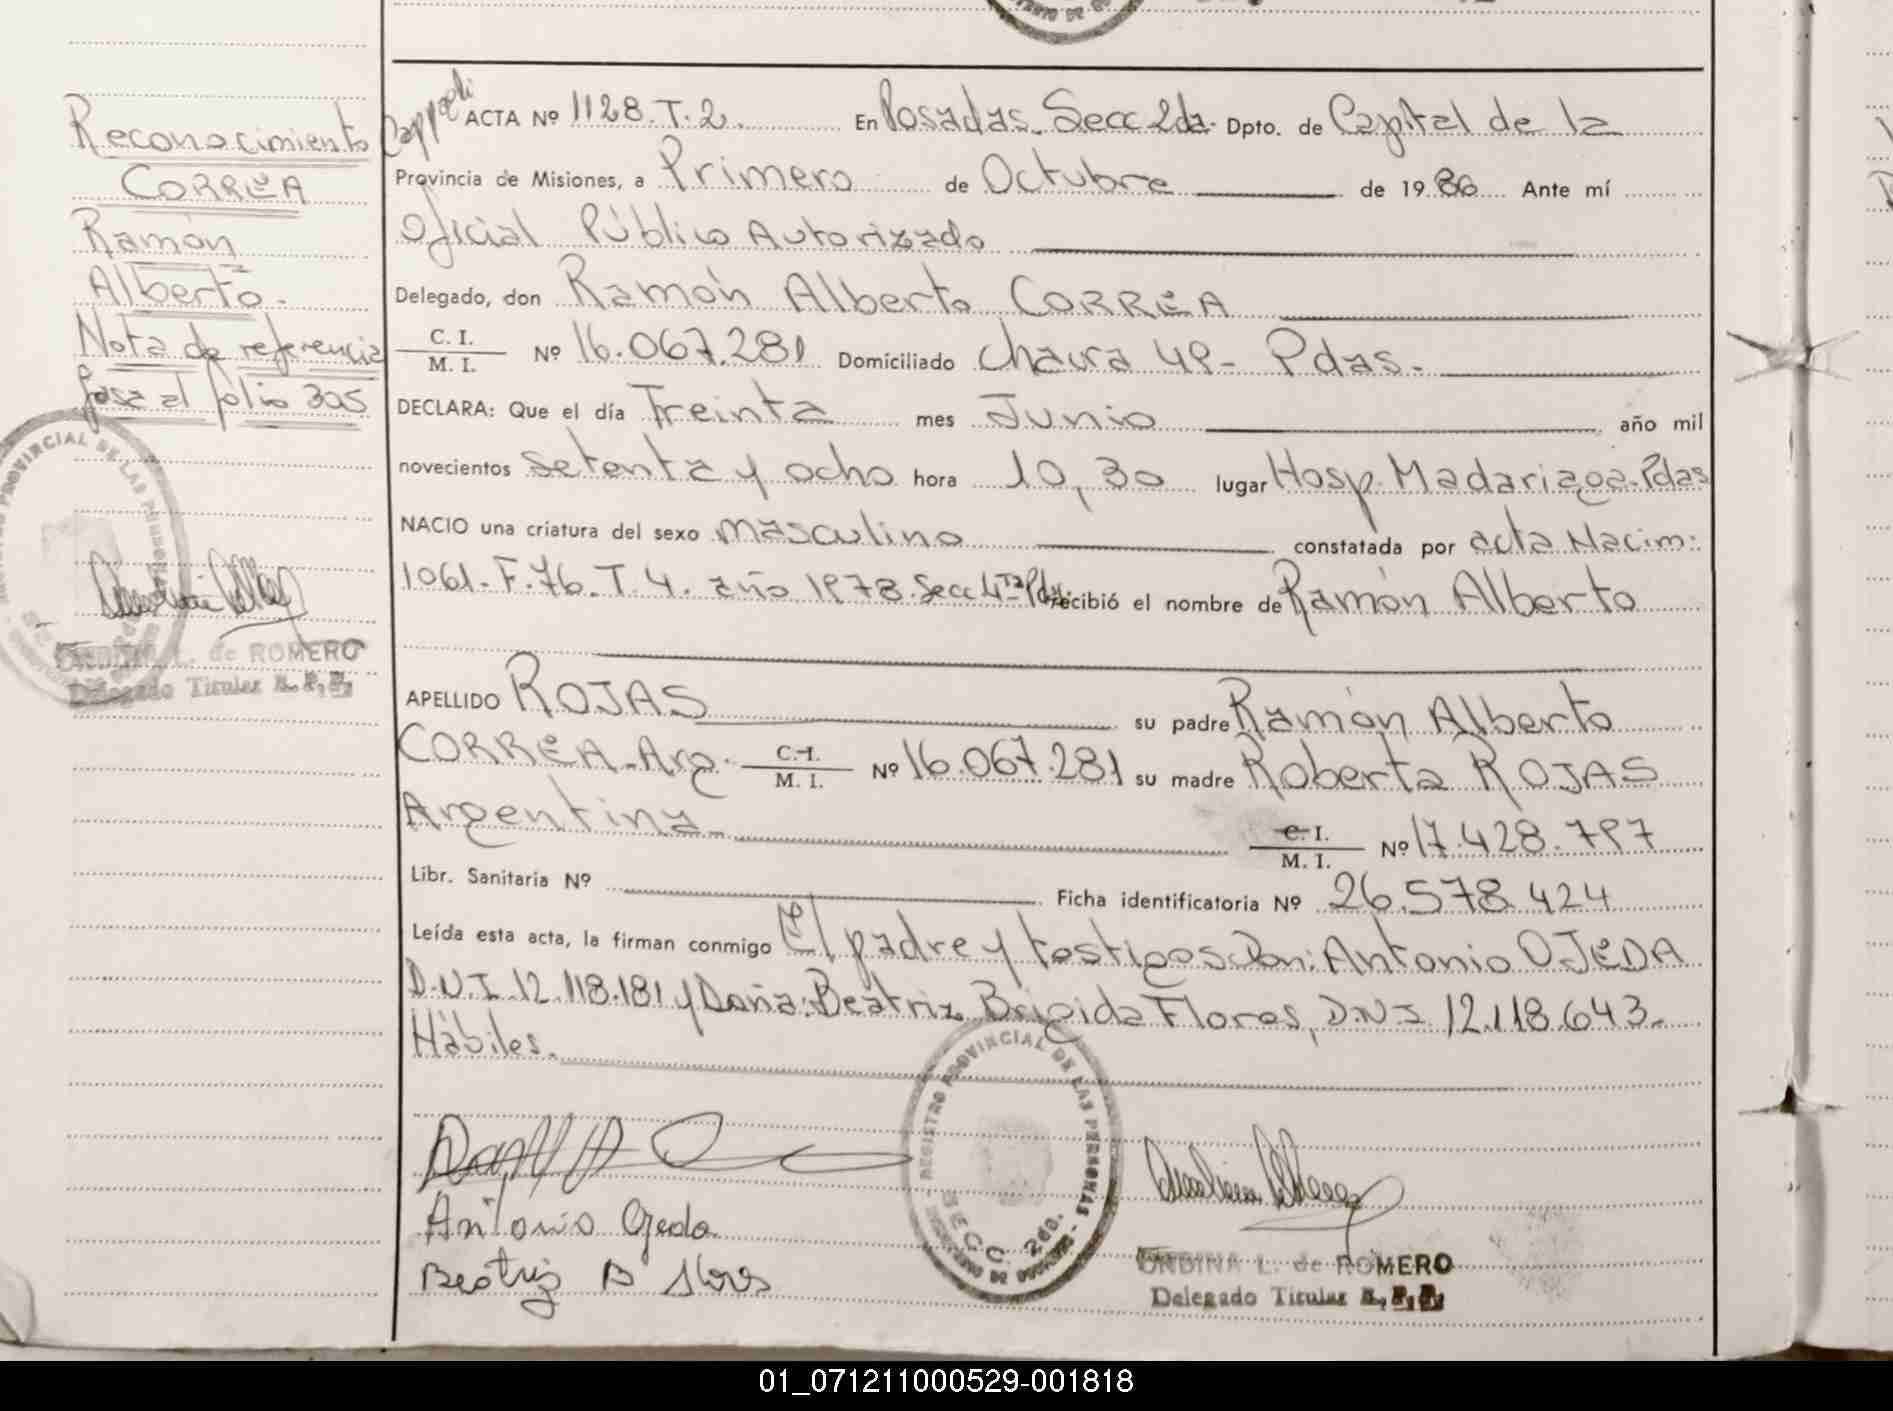 Reconocimiento
CORREA
Ramón
Alberto.
Nota de referencia
pasa al folio 305
REGISTRO PROVINCIAL DE LAS PERSONAS
L. de ROMERO
Delegado Titular R. P. P.
ACTA Nº 1128. T. 2. En Posadas. Secc 2da. Dpto. de Capital de la
Provincia de Misiones, a Primero de Octubre de 1986 Ante mí
Oficial Público Autorizado
Delegado, don Ramón Alberto CORREA
C. I. / M. I. Nº 16.067.281 Domiciliado Chacra 49- Pdas.
DECLARA: Que el día Treinta mes Junio año mil
novecientos setenta y ocho hora 10,30 lugar Hosp. Madariaga-Pdas
NACIO una criatura del sexo masculino constatada por acta Nacim:
1061. F. 76. T. 4. año 1978. Secc 4ta Pdas. recibió el nombre de Ramón Alberto
APELLIDO ROJAS su padre Ramón Alberto
CORREA-Arg. C. I. / M. I. Nº 16.067.281 su madre Roberta ROJAS
Argentina C. I. / M. I. Nº 17.428.797
Libr. Sanitaria Nº Ficha identificatoria Nº 26.578.424
Leída esta acta, la firman conmigo El padre y testigos Don: Antonio OJEDA
D.N.I. 12.118.181 y Doña: Beatriz Brigida Flores, D.N.I. 12.118.643.
Hábiles.
REGISTRO PROVINCIAL DE LAS PERSONAS
SECC. 2da.
Antonio Ojeda
Beatriz B Flores
ONDINA L. de ROMERO
Delegado Titular R. P. P.
01_071211000529-001818